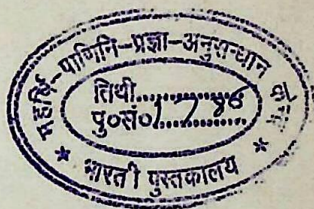 महर्षि-पाणिनि-प्रज्ञा-अनुसन्धान
तिथी..............
पु०सं०1786.............
* भारती पुस्तकालय *